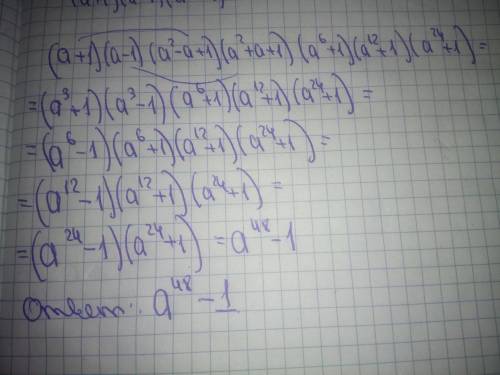 (a+1)(a-1)(a²-a+1)(a²+a+1)(a⁶+1)(a¹²+1)(a²⁴+1)=
=(a³+1)(a³-1)(a⁶+1)(a¹²+1)(a²⁴+1)=
=(a⁶-1)(a⁶+1)(a¹²+1)(a²⁴+1)=
=(a¹²-1)(a¹²+1)(a²⁴+1)=
=(a²⁴-1)(a²⁴+1)=a⁴⁸-1
Ответ: a⁴⁸-1